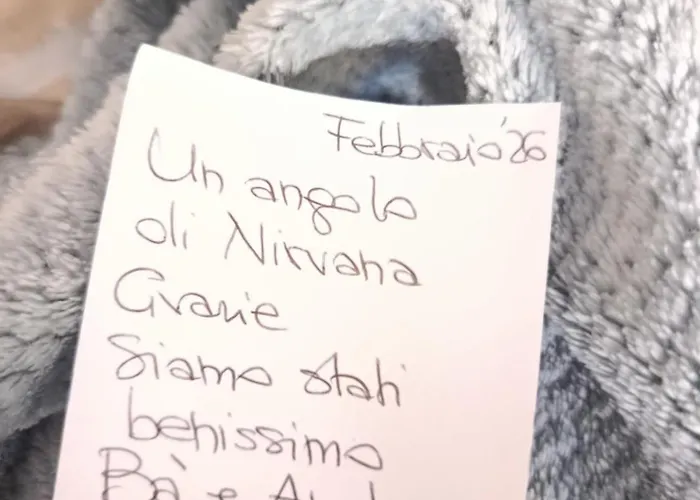 Febbraio '26
Un angolo
di Nirvana
Grazie
Siamo stati
benissimo
Bà e